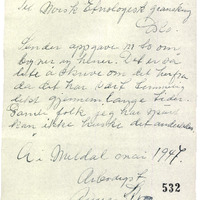 Til Norsk Etnologisk gransking
Oslo.
Sender oppgave nr to om
bygner og hener. Det er så
lite å skrive om det herfra
da det har vært
gjennem lange tider.
Gamle folk jeg har
kan ikke huske det anderledes.
Meldal mai 1947.
Ærbødigst
532